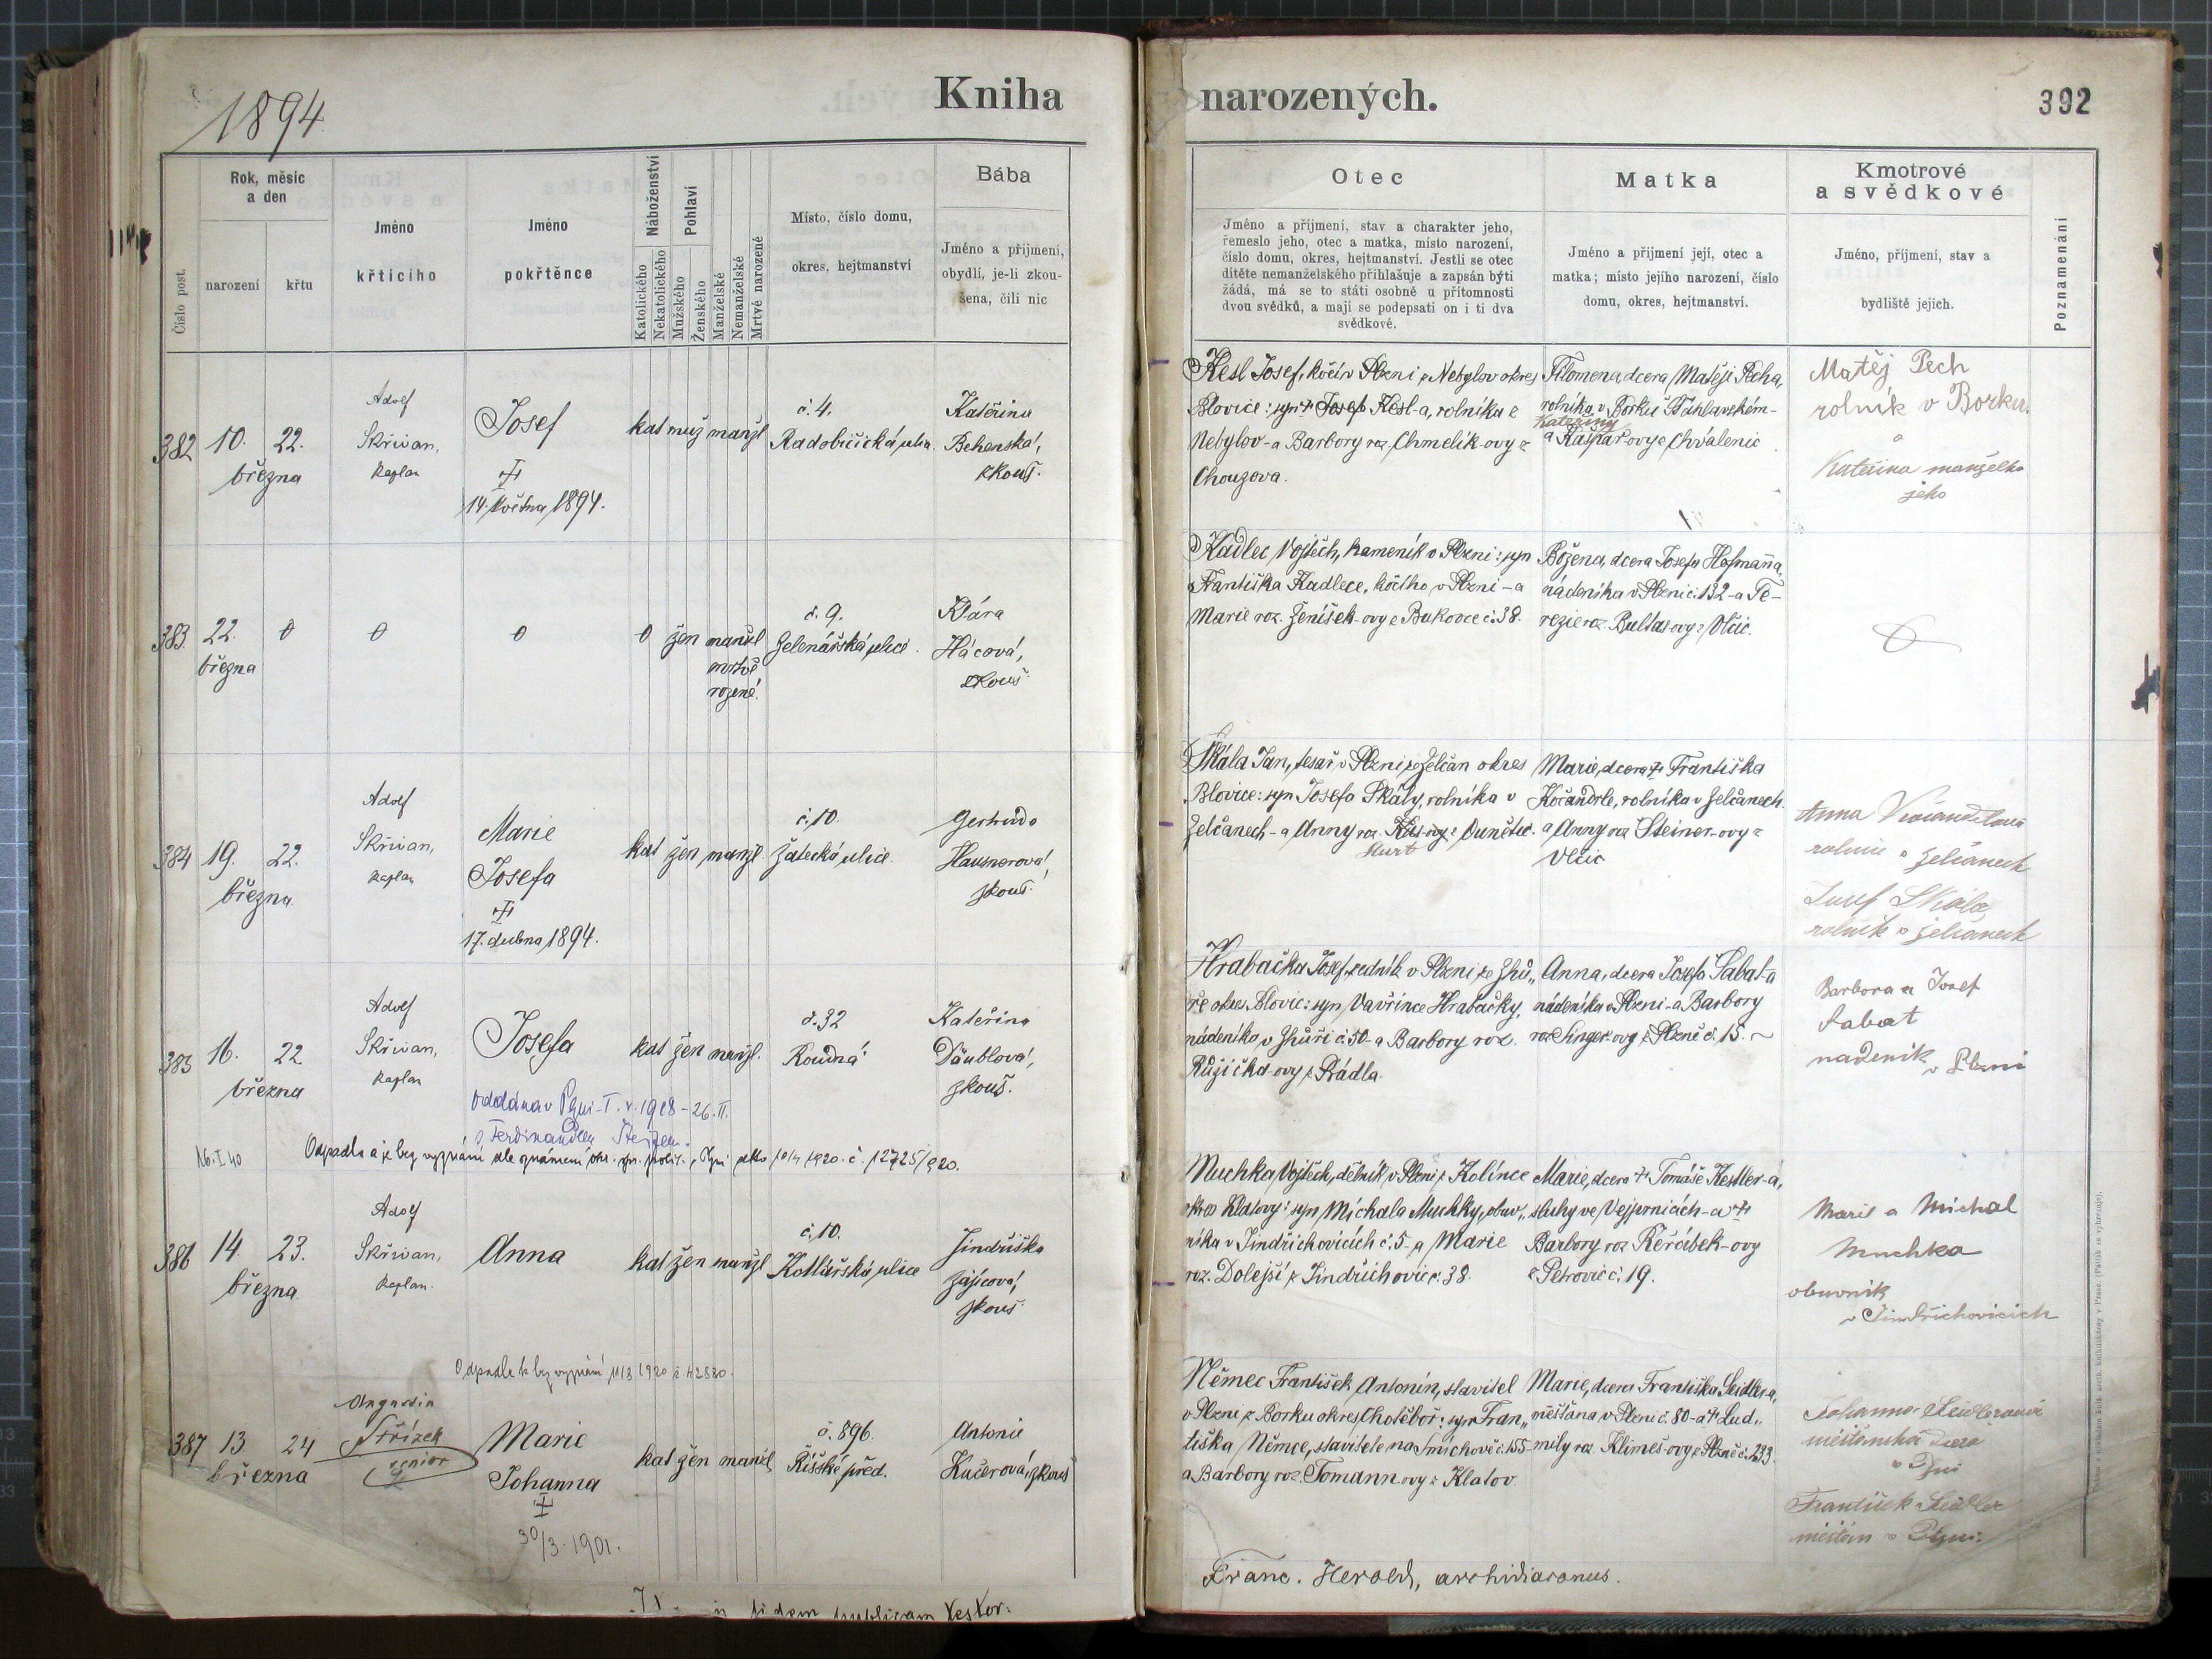 1894
Kniha
narozených.
392
Číslo post.
Rok, měsíc
a den
narození
křtu
Jméno
křtícího
Jméno
pokřtěnce
Náboženství
Katolického
Nekatolického
Pohlaví
Mužského
Ženského
Manželské
Nemanželské
Mrtvě narozené
Místo, číslo domu,
okres, hejtmanství
Bába
Jméno a příjmení,
obydlí, je-li zkou-
šena, čili nic
Otec
Jméno a příjmení, stav a charakter jeho,
řemeslo jeho, otec a matka, místo narození,
číslo domu, okres, hejtmanství. Jestli se otec
dítěte nemanželského přihlašuje a zapsán býti
žádá, má se to státi osobně u přítomnosti
dvou svědků, a mají se podepsati on i ti dva
svědkové.
Matka
Jméno a příjmení její, otec a
matka; místo jejího narození, číslo
domu, okres, hejtmanství.
Kmotrové
a svědkové
Jméno, příjmení, stav a
bydliště jejich.
Poznamenání
382 10. 22.
března
Adolf
Skřivan,
kaplan
Josef
14. května 1894.
kat muž manžl
č. 4.
Radobičická ulice.
Kateřina
Behenská,
zkouš.
Kesl Josef, kočí v Plzni z Nebylov okres
Blovice: syn † Josefa Kesl-a, rolníka z
Nebylov - a Barbory roz. Chmelik-ovy z
Chouzova.
Filomena, dcera Matěje Pecha,
rolníka v Borku Šťáhlavském -
Kateřiny
a Kašpar-ovy z Chválenic
Matěj Pech
rolník v Borku.
a
Kateřina manželka
jeho
383. 22.
března
0 0 0 0
žen manžel
mrtvě
rozené.
č. 9.
Zelenářská ulice.
Klára
Hácová,
zkouš.
Kadlec Vojtěch, kameník v Plzni: syn
Františka Kadlece, kočího v Plzni - a
Marie roz. Ženíšek-ovy z Bukovce č. 38.
Božena, dcera Josefa Hofmanna,
nádeníka v Plzni č. 132 - a Te-
rezie roz. Baltas-ovy z Vlčic.
384 19. 22.
března
Adolf
Skřivan,
kaplan
Marie
Josefa
17. dubna 1894.
kat žen manžl.
č. 10.
Žatecká ulice.
Gertruda
Hausnerová,
zkouš.
Skála Jan, tesař v Plzni ze Želčan okres
Blovice: syn Josefa Skály, rolníka v
Želčanech - a Anny roz.
Marie, dcera † Františka
Kočandrle, rolníka v Želčanech.
a Anny roz Steiner-ovy z
Vlčic
Anna
rolnice v Želčanech
Josef Skála
rolník v Želčanech
385 16. 22
března
Adolf
Skřivan,
kaplan
Josefa
kat žen manžl.
č. 32
Roudná
Kateřina
Däublová,
zkouš.
oddána v Plzni - I. r. 1918 - 26. II.
s Ferdinandem
16. I. 40
Odpadla a je bez vyznání dle oznámení okr. spr. polit. v Plzni 1920. č. 12725/920.
Hrabačka Josef, zedník v Plzni, ze Zhů„
ře okres Blovic: syn Vavřince Hrabačky,
nádeníka v Zhůři č. 50 - a Barbory roz.
Růžička-ovy z Prádla.
Anna, dcera Josefa Sabat-a
nádeníka v Plzni - a Barbory
roz Singer-ovy z Plzně č. 15.
Barbora a Josef
Sabat
nadeník v Plzni
386 14. 23.
března
Adolf
Skřivan,
kaplan.
Anna
kat žen manžl
č. 10.
Kotlářská ulice
Jindřiška
Zájícová,
zkouš.
Odpadla k bez vyznání 11/3 1920 č. 42820.
Muchka Vojtěch, dělník v Plzni z Kolince
okres Klatovy: syn Michala Muchky, obuv„
níka v Jindřichovicích č. 5 - a Marie
roz. Dolejší z Jindřichovic č. 38.
Marie, dcera † Tomáše Kestler-a,
sluhy ve Vejprnicích - a †
Barbory roz Řeřábek-ovy
z Petrovic č. 19.
Marie a Michal
Muchka
obuvník
v Jindřichovicích
387 13. 24
března
Augustin
Střízek
senior
Marie
Johanna
30/3. 1901.
kat žen manžl
č. 896.
Říšské před.
Antonie
Kučerová, zkouš
Němec František Antonín, stavitel
v Plzni z Borku okres Chotěboř: syn Fran„
tiška Němce, stavitele na Smíchově č. 155
a Barbory roz. Tomann-ovy z Klatov
Marie, dcera Františka Seidlera,
měšťana v Plzni č. 80 - a † Lud„
mily roz. Klimeš-ovy z Plzně č. 233.
Johanna Seidlerová
měšťanka dcera
v Plzni
František Seidler
měšťan v Plzni.
Franc. Herold, archidiaconus.
in fidem publicam testor: